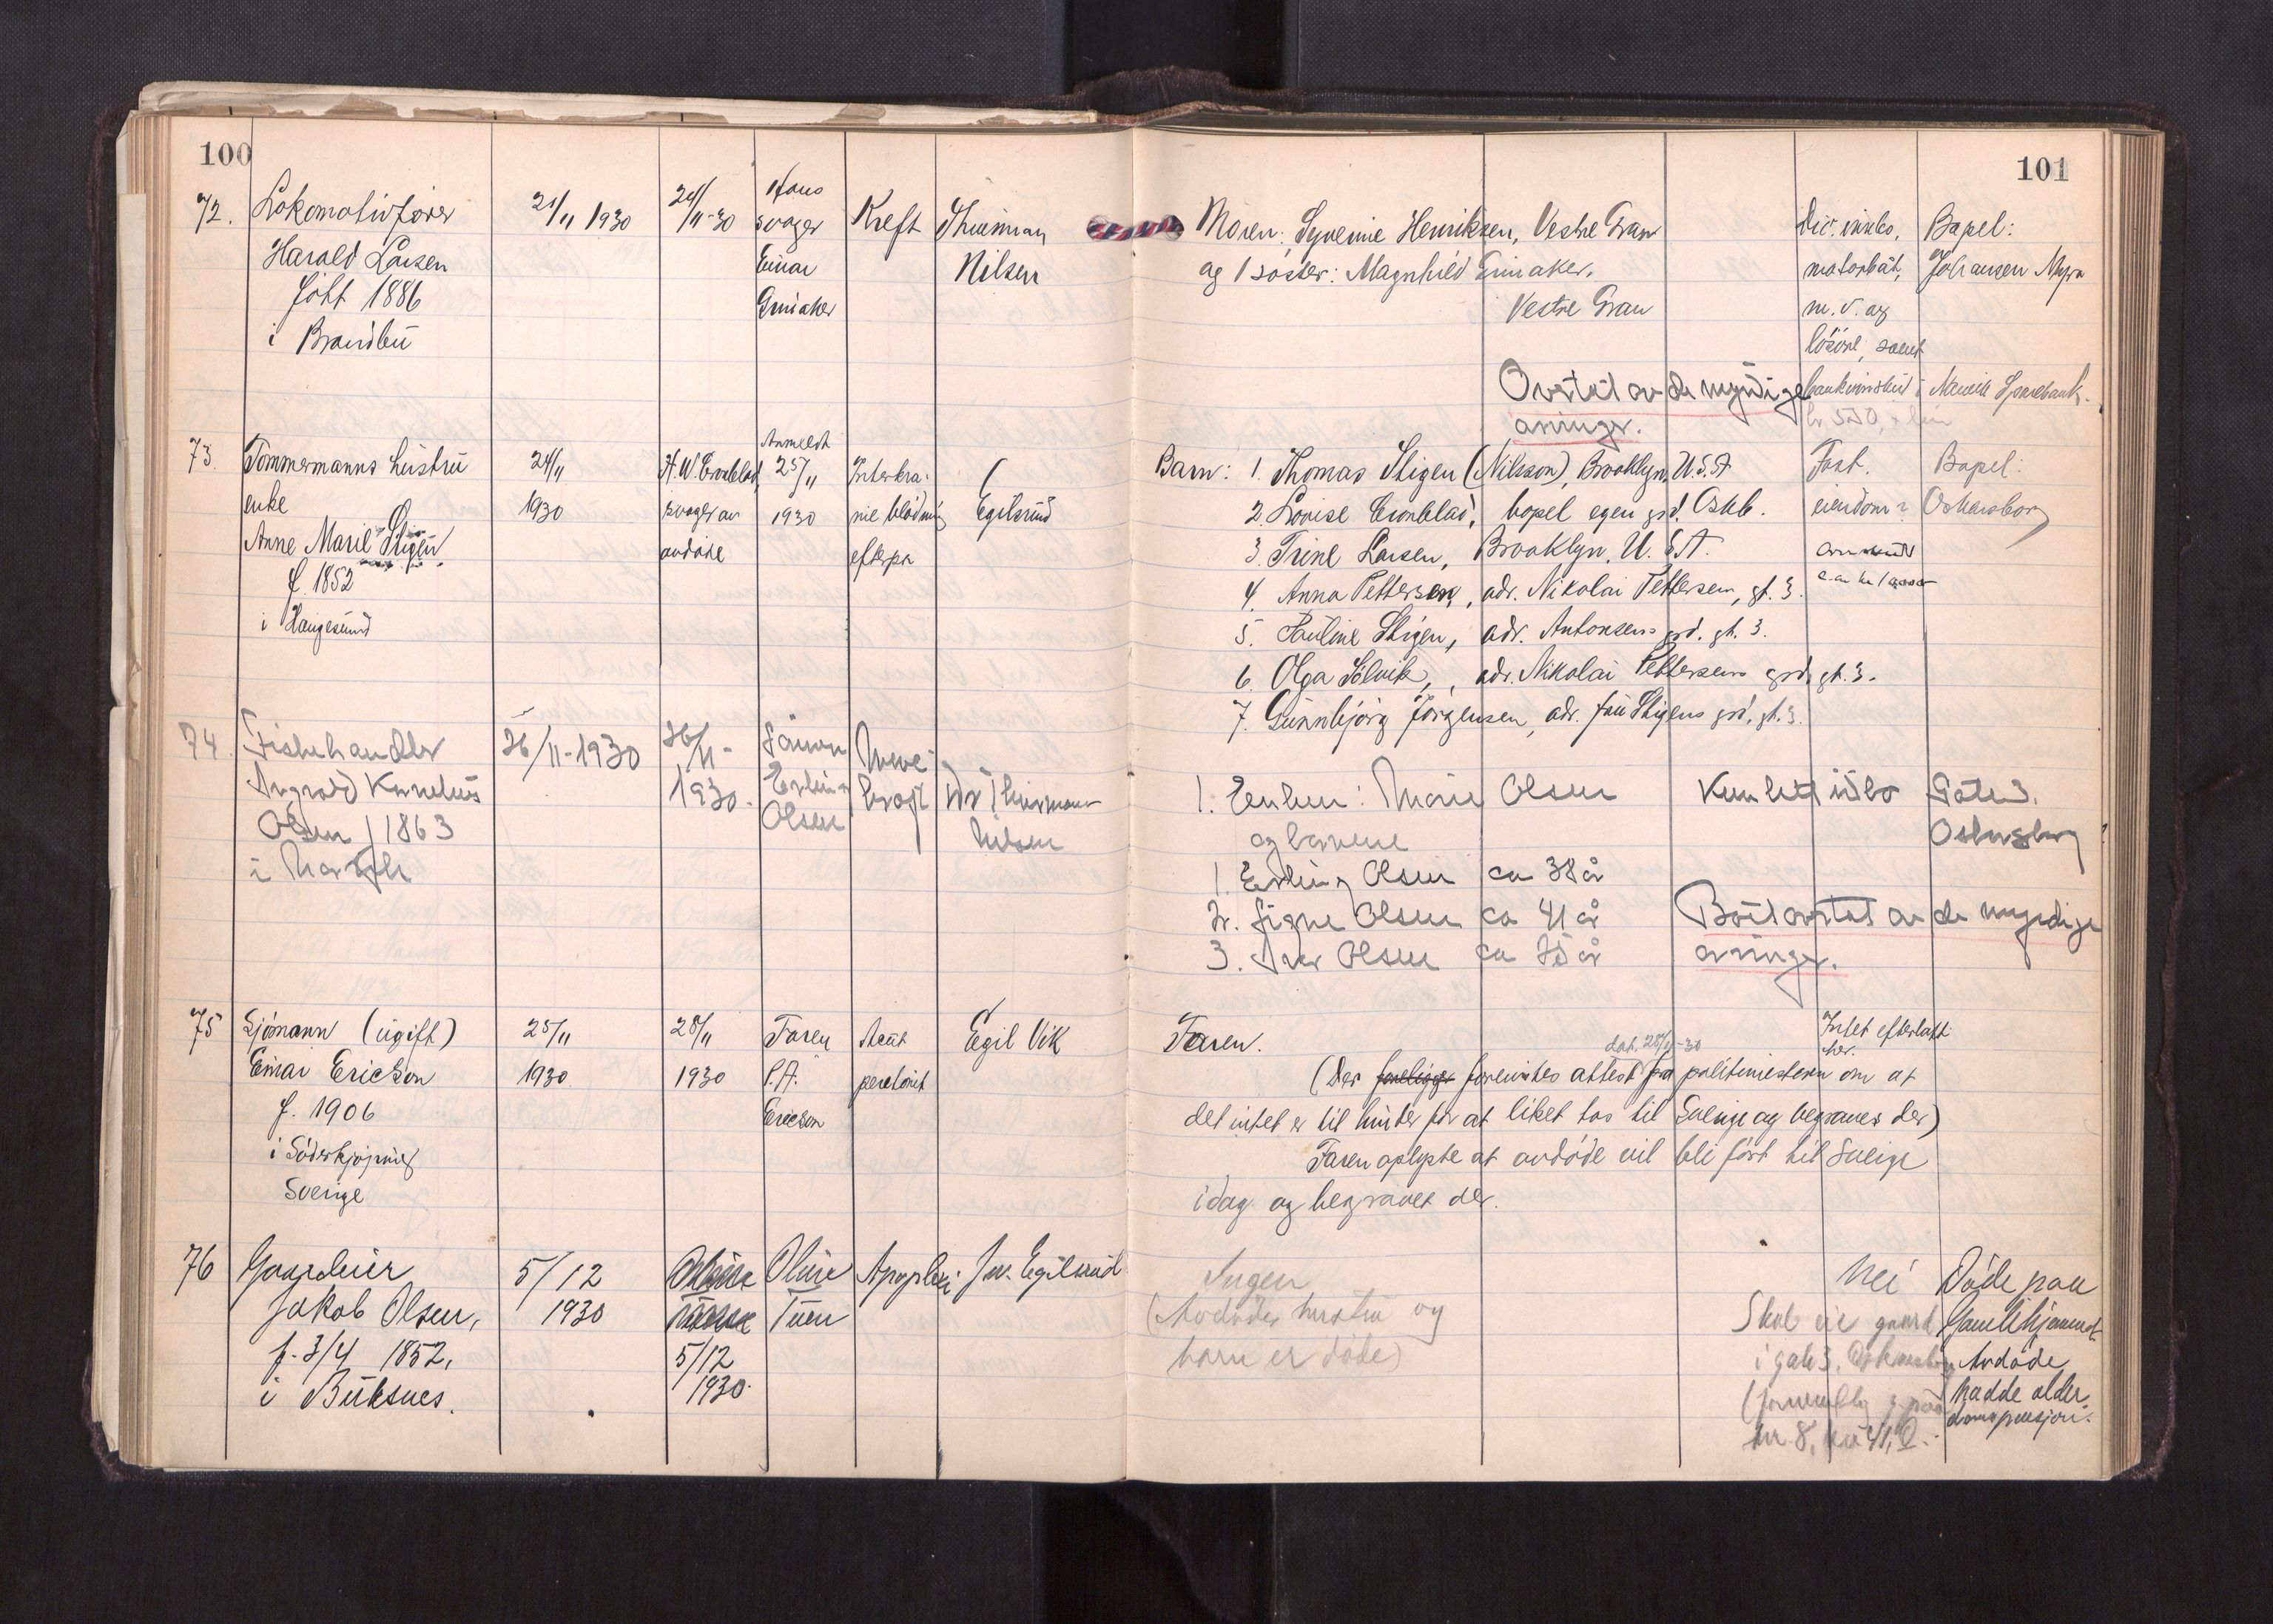 100
101
72. Lokomotivfører
Harald Larsen
født 1886
i Brandbu
21/11 1930
24/11-30
Hans
svoger
Einar
Griniaker
Kreft
Thinman
Nilsen
Moren: Syverine Henriksen, Vestre Gran
og 1 søster: Magnhild Griniaker.
Vestre Gran
Div. innbo,
motorbåt,
m. v. og
løsøre, samt
bankinnskud i Narvik Sparebank.
kr 550,
Bopel:
Johansen Myra
Overtat av de myndige
arvinger.
73. Tømmermanns hustru
enke
Anne Marie Stigen
f. 1852
i Haugesund
24/11
1930
H. W. Cronblad,
svoger av
avdøde
Anmeldt
25/11
1930
Interkra-
nie blødning
efterpå
Egilsrud
Barn: 1. Thomas Stigen (Nilsson), Brooklyn, U.S.A
2. Lovise Cronblad, bopel egen grd. Oskb.
3. Trine Larsen, Brooklyn, U.S.A.
4. Anna Pettersen, adr. Nikolai Pettersen, gt. 3.
5. Pauline Stigen, adr. Antonsens grd. gt. 3.
6. Olga Sølvik, adr. Nikolai Pettersens grd, gt. 3.
7. Gunnbjørg Jørgensen, adr. fru Stigens grd, gt. 3.
Fast
eiendom?
Bopel:
Oskarsborg
74. Fiskehandler
Ingvald Kornelius
Olsen f 1863
i
26/11-1930
26/11-
1930.
Sønnen
Erling
Olsen
Dr Thinmann
Nilsen
1. Enken: Marie Olsen
og barnene
1. Erling Olsen ca 38 år
2. Signe Olsen ca 41 år
3. Olsen ca 25 år
Kun litt inbo
Gate 3.
Oskarsborg
Boet overtat av de myndige
arvinger.
75 Sjømann (ugift)
Einar Ericson
f. 1906
i Søderkjøping
Sverige
25/11
1930
28/11
1930
Faren
P.A.
Ericson
Akut
peritonit
Egil Vik
Faren.
Intet efterlatt
her.
dat. 28/11-30
(Der foreligger forevistes attest fra politimesteren om at
det intet er til hinder for at liket tas til Sverige og begraves der)
Faren oplyste at avdøde vil bli ført til Sverige
idag og begravet der.
76 Gaardeier
Jakob Olsen,
f. 3/4 1852,
i Buksnes.
5/12
1930
5/12
1930.
Oluse
Tuen
Apopleksi
J. Egilsrud
Ingen
(Avdødes hustru og
barn er døde)
Nei
Skal eie gaard
i gate 3. Oskarsborg
Døde paa
Gamlehjemmet
Avdøde
hadde alder-
domspensjon.